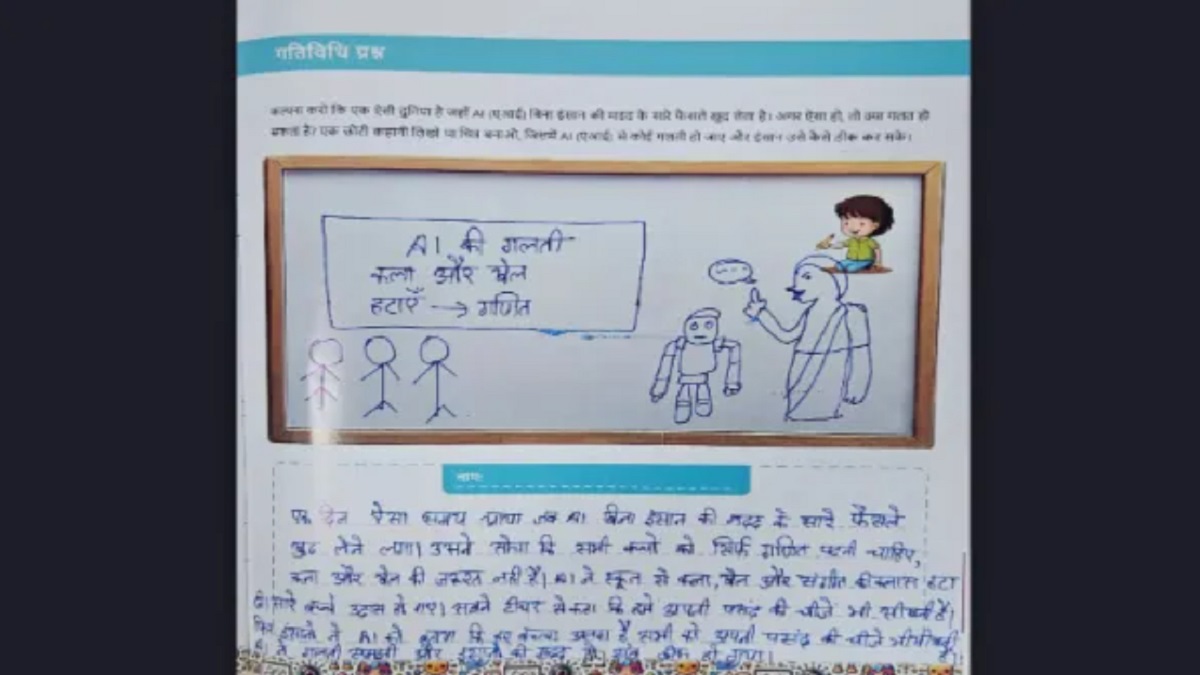 गतिविधि प्रश्न
कल्पना करो कि एक ऐसी दुनिया है जहाँ AI (एआई) बिना इंसान की मदद के सारे फैसले खुद लेता है। अगर ऐसा हो, तो क्या गलत हो
सकता है? एक छोटी कहानी लिखो या चित्र बनाओ, जिसमें AI (एआई) से कोई गलती हो जाए और इंसान उसे कैसे ठीक कर सके।
AI की गलती
कला और खेल
हटाएँ → गणित
नाम:
एक दिन ऐसा समय आया जब AI बिना इंसान की मदद के सारे फैसले
खुद लेने लगा। उसने सोचा कि सभी बच्चों को सिर्फ गणित पढ़नी चाहिए,
कला और खेल की जरूरत नहीं है। AI ने स्कूल से कला, खेल और संगीत की क्लास हटा
दी। सारे बच्चे उदास हो गए। सबने टीचर से कहा कि हमें अपनी पसंद की चीजें भी सीखनी हैं।
फिर इंसानों ने AI को बताया कि हर बच्चा अलग है सभी को अपनी पसंद की चीजें सीखनी
ने गलती समझी और इंसानों की मदद से सब ठीक हो गया।